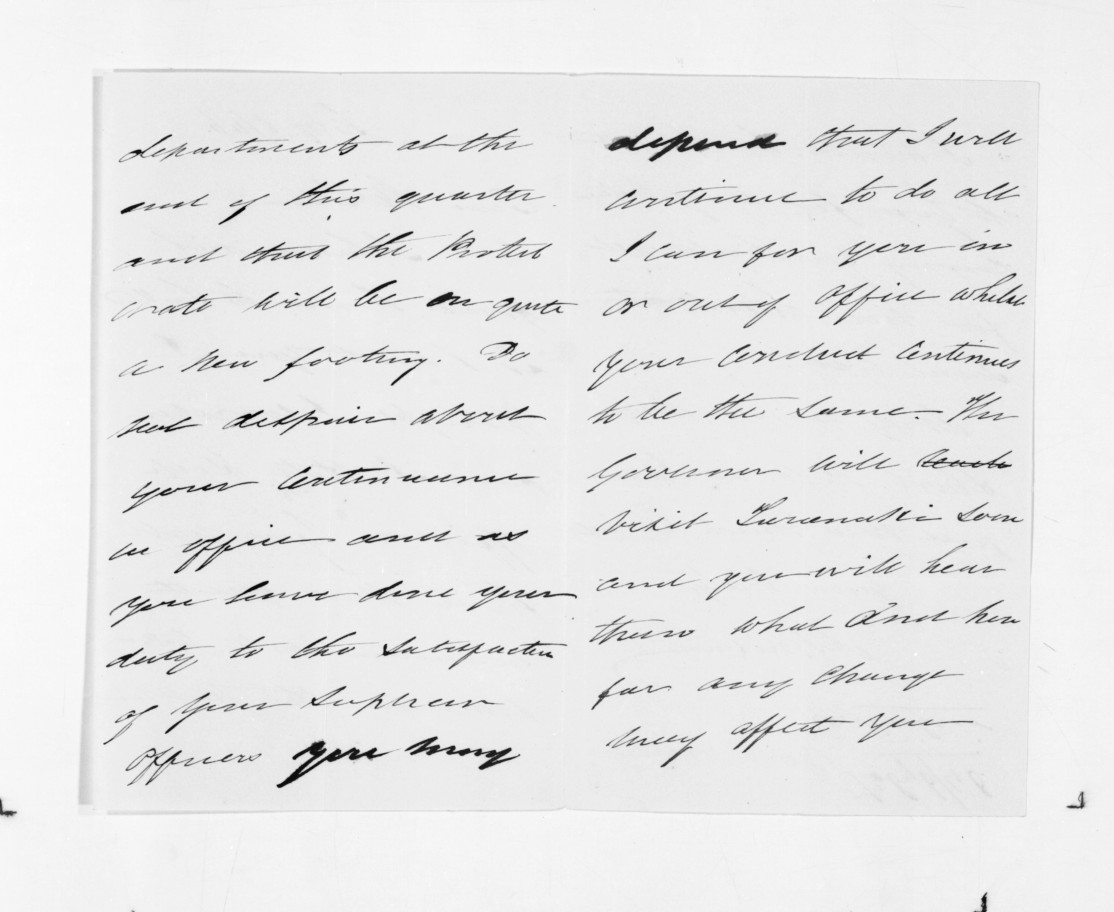 departments at the
end of this quarter
and that the Protect
orate will be on quite
a new footing. Do
not despair about
your continuance
in office and as
you have done your
duty to the satisfaction
of your superior
officers you may
depend that I will
continue to do all
I can for you in
or out of office whilst
your conduct continues
to be the same. The
Governor will
visit Taranaki soon
and you will hear
then what and how
far any change
may affect you